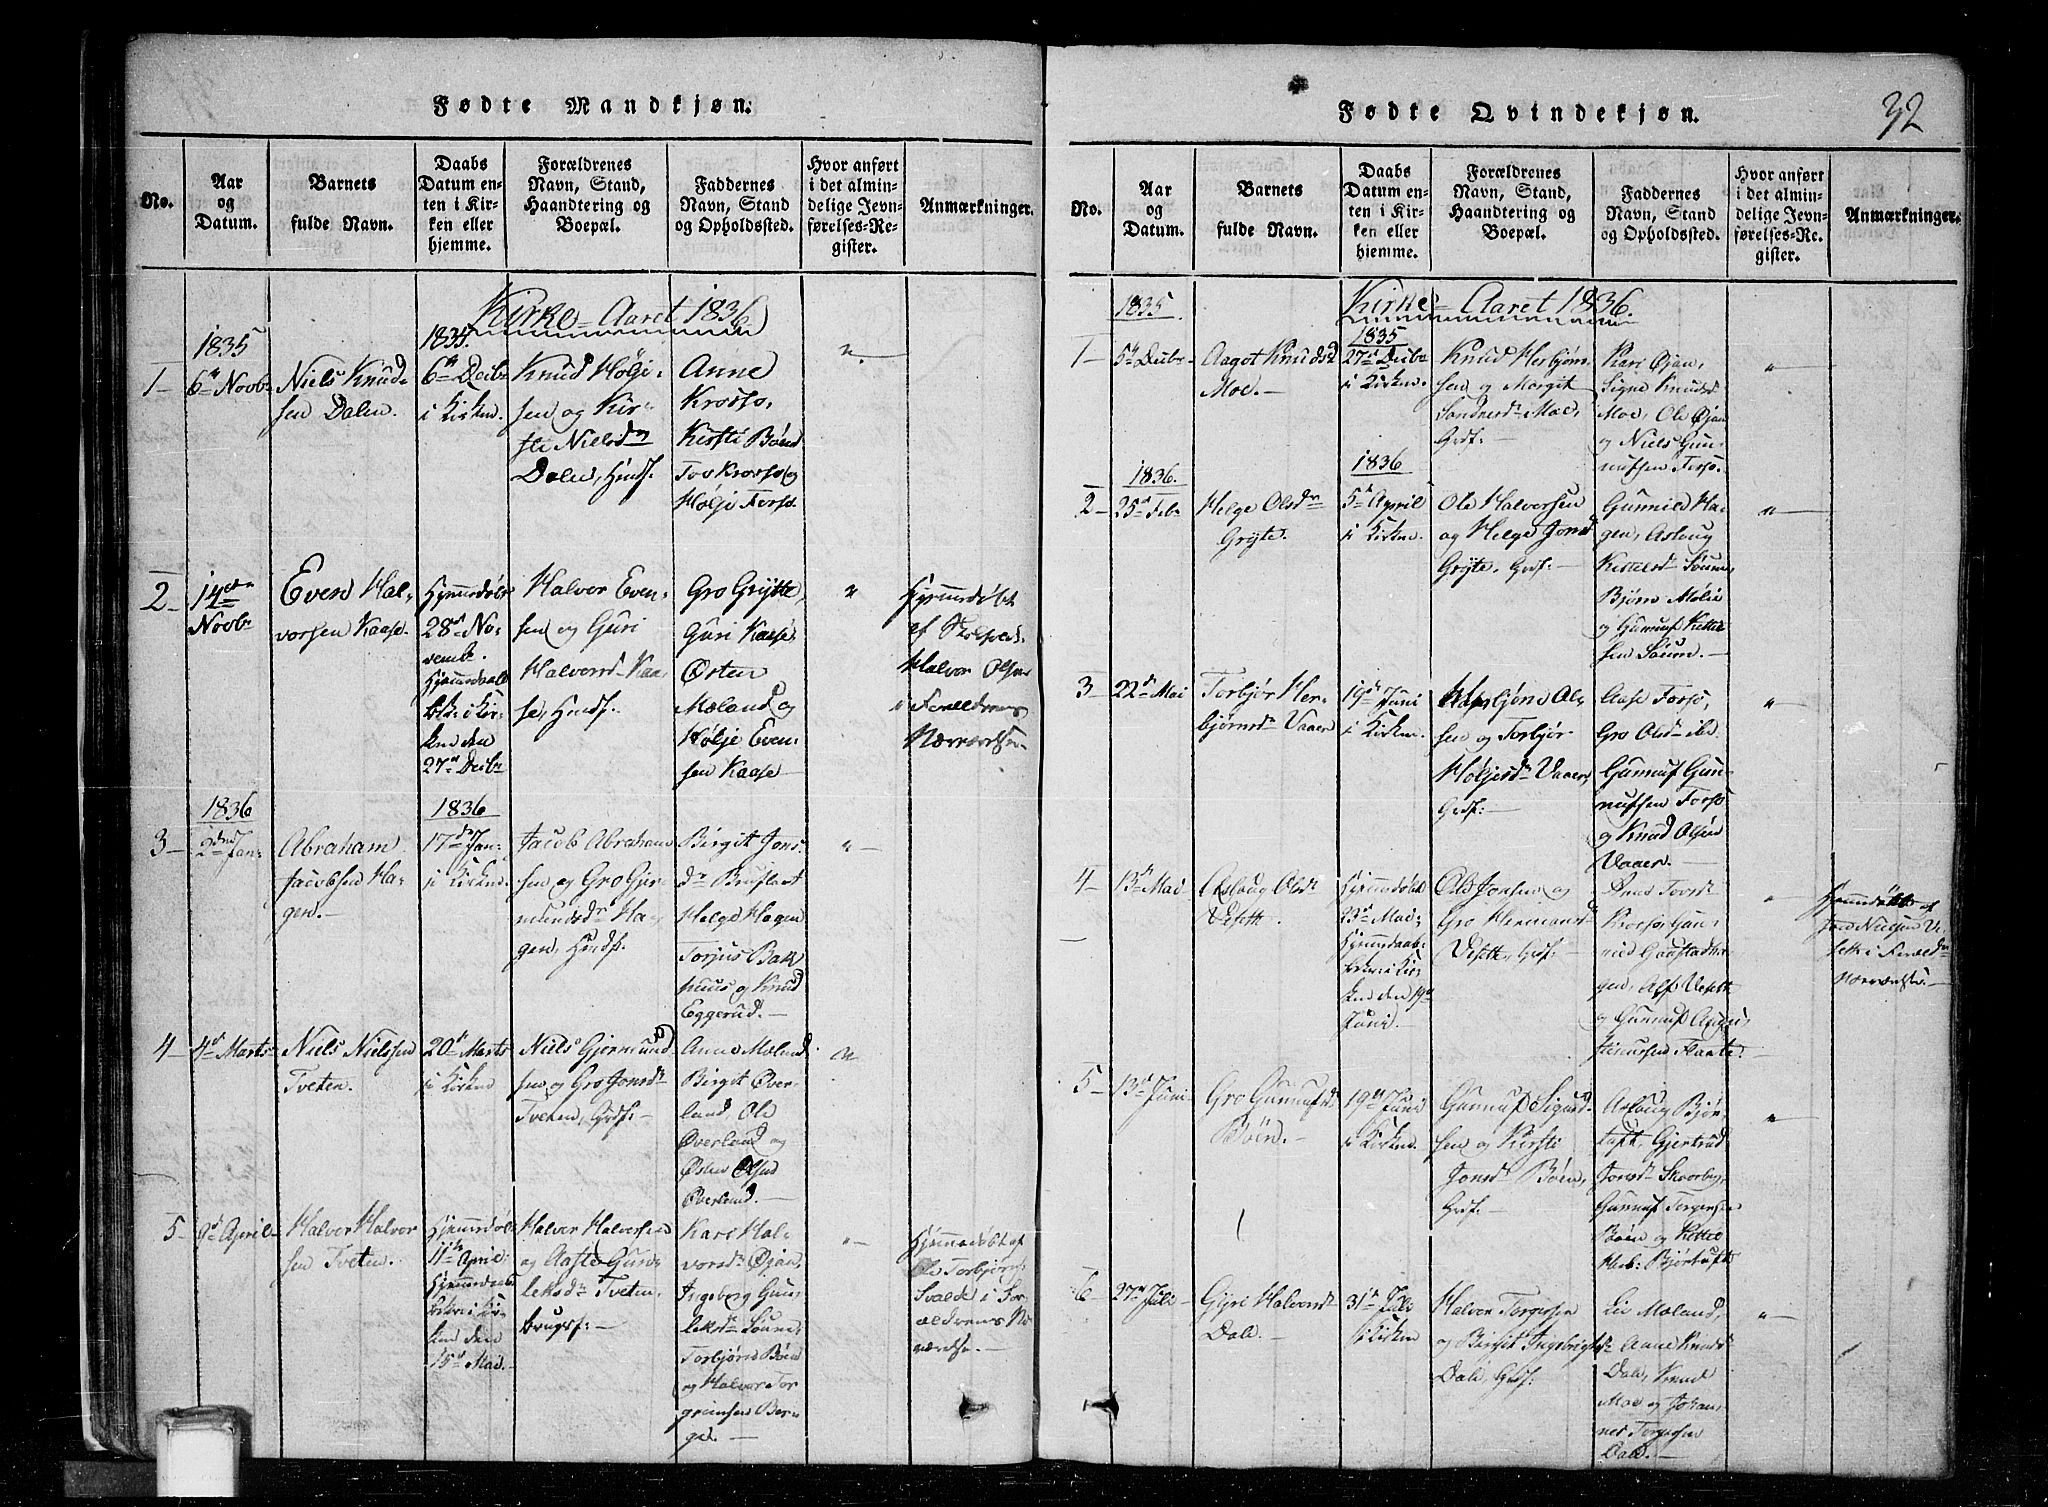 Fødte Mandkjøn.
No.
Aar
og
Datum.
Barnets
fulde Navn.
Daabs
Datum en-
ten i Kir-
ken eller
hjemme.
Forældrenes
Navn, Stand,
Haandtering og
Boepæl.
Faddernes
Navn, Stand
og Opholdssted.
Hvor anført
i det almin-
delige Jevn-
førelses-Re-
gister.
Anmærkninger.
Kirke-Aaret 1836
1835
1835
1-
6te Novbr
Niels Knud-
sen Dalen.
6te Decbr
i Kirken.
Knud Hølje-
sen og Kir-
sti Nielsdr
Dalen, Hmdf.
Anne
Krosso,
Kirsti Bøen
Tov Krosso og
Hølje Torso.
2-
14de
Novbr
Even Hal-
vorsen Kaase.
Hjemmedøbt
28de No-
vembr.
Hjemmedaab
bek: i Kir-
ken den
27de Decbr
Halvor Even-
sen og Guri
Halvorsd. Kaa-
se, Hmdf.
Gro Grytte,
Guri Kaase,
Østen
Moland og
Hølje Even-
sen Kaase
Hjemmedøbt
af
Halvor Olsen
i Foreldrenes
Nærværelse.
1836
1836
3-
2den Jan-
Abraham
Jacobsen Ha-
gen.
17de Jan-
i Kirken.
Jacob Abraham-
sen og Gro Gjer-
mundsdr Ha-
gen, Hmdf.
Birgit Jons-
dr
Helge Hagen
Torjus Bak-
huus og Knud
Eggerud.
4-
4de Marts
Niels Nielsen
Tveten.
20de Marts
i Kirken
Niels Gjermund-
sen og Gro Jonsdr
Tveten, Grdf:
Anne Moland
Birgit Over-
land, Ole
Øverland og
Østen Olsen
Øverland.
5-
9de April
Halvor Halvor-
sen Tveten.
Hjemmedøbt
11te April,
ken den
15de Mai.
Halvor Halvorsen
og Aaste Gun-
leksdr Tveten,
brugsf:
Kari Hal-
vorsdr Øjan,
Ingeborg Gun-
leksdr
Torbjørn Bøen
og Halvor Tor-
grimsen Ber-
ge.
Hjemmedøbt af
Ole Torbjørns.
Svalde i For-
ældrenes Nær-
værelse.
Fødte Qvindekjøn.
32
No.
Aar
og
Datum.
Barnets
fulde Navn.
Daabs
Datum en-
ten i Kir-
ken eller
hjemme.
Forældrenes
Navn, Stand,
Haandtering og
Boepæl.
Faddernes
Navn, Stand
og Opholdssted.
Hvor anført
i det almin-
delige Jevn-
førelses-Re-
gister.
Anmærkninger.
1835
Kirke-Aaret 1836.
1835
1-
5te Decbr
Aagot Knudsd
Moe.
27de Decbr
i Kirken.
Knud Herbjørn-
sen og Margit
Sondresdr Moe,
Grdf:
Kari Øjan,
Signe Knudsd
Moe, Ole Øjan
og Niels Gun-
nufsen Torso.
1836.
1836
2-
25de Febr
Helge Olsdr
Gryte.
5te April
i Kirken.
Ole Halvorsen
og Helge Jonsd
Gryte, Grdf:
Gunnild Ha-
gen, Aslaug
Kittelsd
Bjørn
og Gunnuf Kittel-
sen
3-
22de Mai
Torbjør Her-
bjørnsdr Vaaer
19de Juni
i Kirken.
Herbjørn Ol-
sen og Torbjør
Høljesdr Vaaer,
Grdf:
Aase Torso,
Gro Olsdr
Gunnuf Gun-
nufsen Torso
og Knud Olsen
Vaaer.
4-
13de Mai
Aslaug Olsdr
Vesett.
Hjemmedøbt
23de Mai-
ken den 19de
Juni.
Ole Jonsen og
Gro Hermansd
Vesett, Grdf:
Anne Tovsdr
Krosso, Gun-
nild Gaastadha-
gen, Alf Vesett
og Gunnuf
Flaate.
Hjemmedøbt af
Jon Nielsen Ve-
sett i Foreldr
Nærværelse.
5-
13de Juni
Gro Gunnufsdr
Bøen.
19de Juni
i Kirken.
Gunnuf Sigurd-
sen og Kirsti
Jonsdr Bøen,
Grdf:
Aslaug Bjør-
tuft, Gjertrud
Jonsdr
Gunnuf Torgersen
Bøen og Kittel
Bjørtuft
6-
27de Juli
Gyri Halvorsdr
Dale.
31te Juli
i Kirken
Halvor Torgersen
og Birgit Ingebrigtsdr
Dale, Grdf:
Liv Moland,
Anne Knudsdr
Dale, Knud
Moe og Johan-
nes Torgersen
Dale.